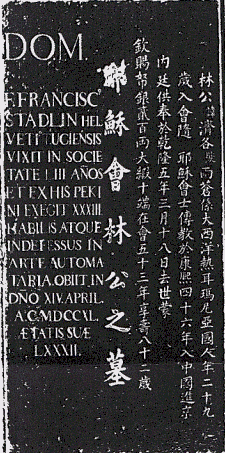 DOM
F. FRANCISC⁹
STADLIN HEL
VETI TUGIENSIS
VIXIT IN SOCIE
TATE LIII AÑOS
ET EX HIS PEKI
NI EXEGIT XXXIII
HABILIS ATQUE
INDEFESSUS IN
ARTE AUTOMA
TARIA. OBIIT. IN
DÑO XIV. APRIL.
A.C. MDCCXL.
ÆTATIS SUÆ
LXXXII.
耶穌會林公之墓
林公諱濟各號雨蒼係大西洋熱耳瑪尼亞國人年二十九
歲入會隨耶穌會士傳教於康熙四十六年入中國進京
內廷供奉於乾隆五年三月十八日去世蒙
欽賜帑銀貳百兩大緞十端在會五十三年享壽八十二歲